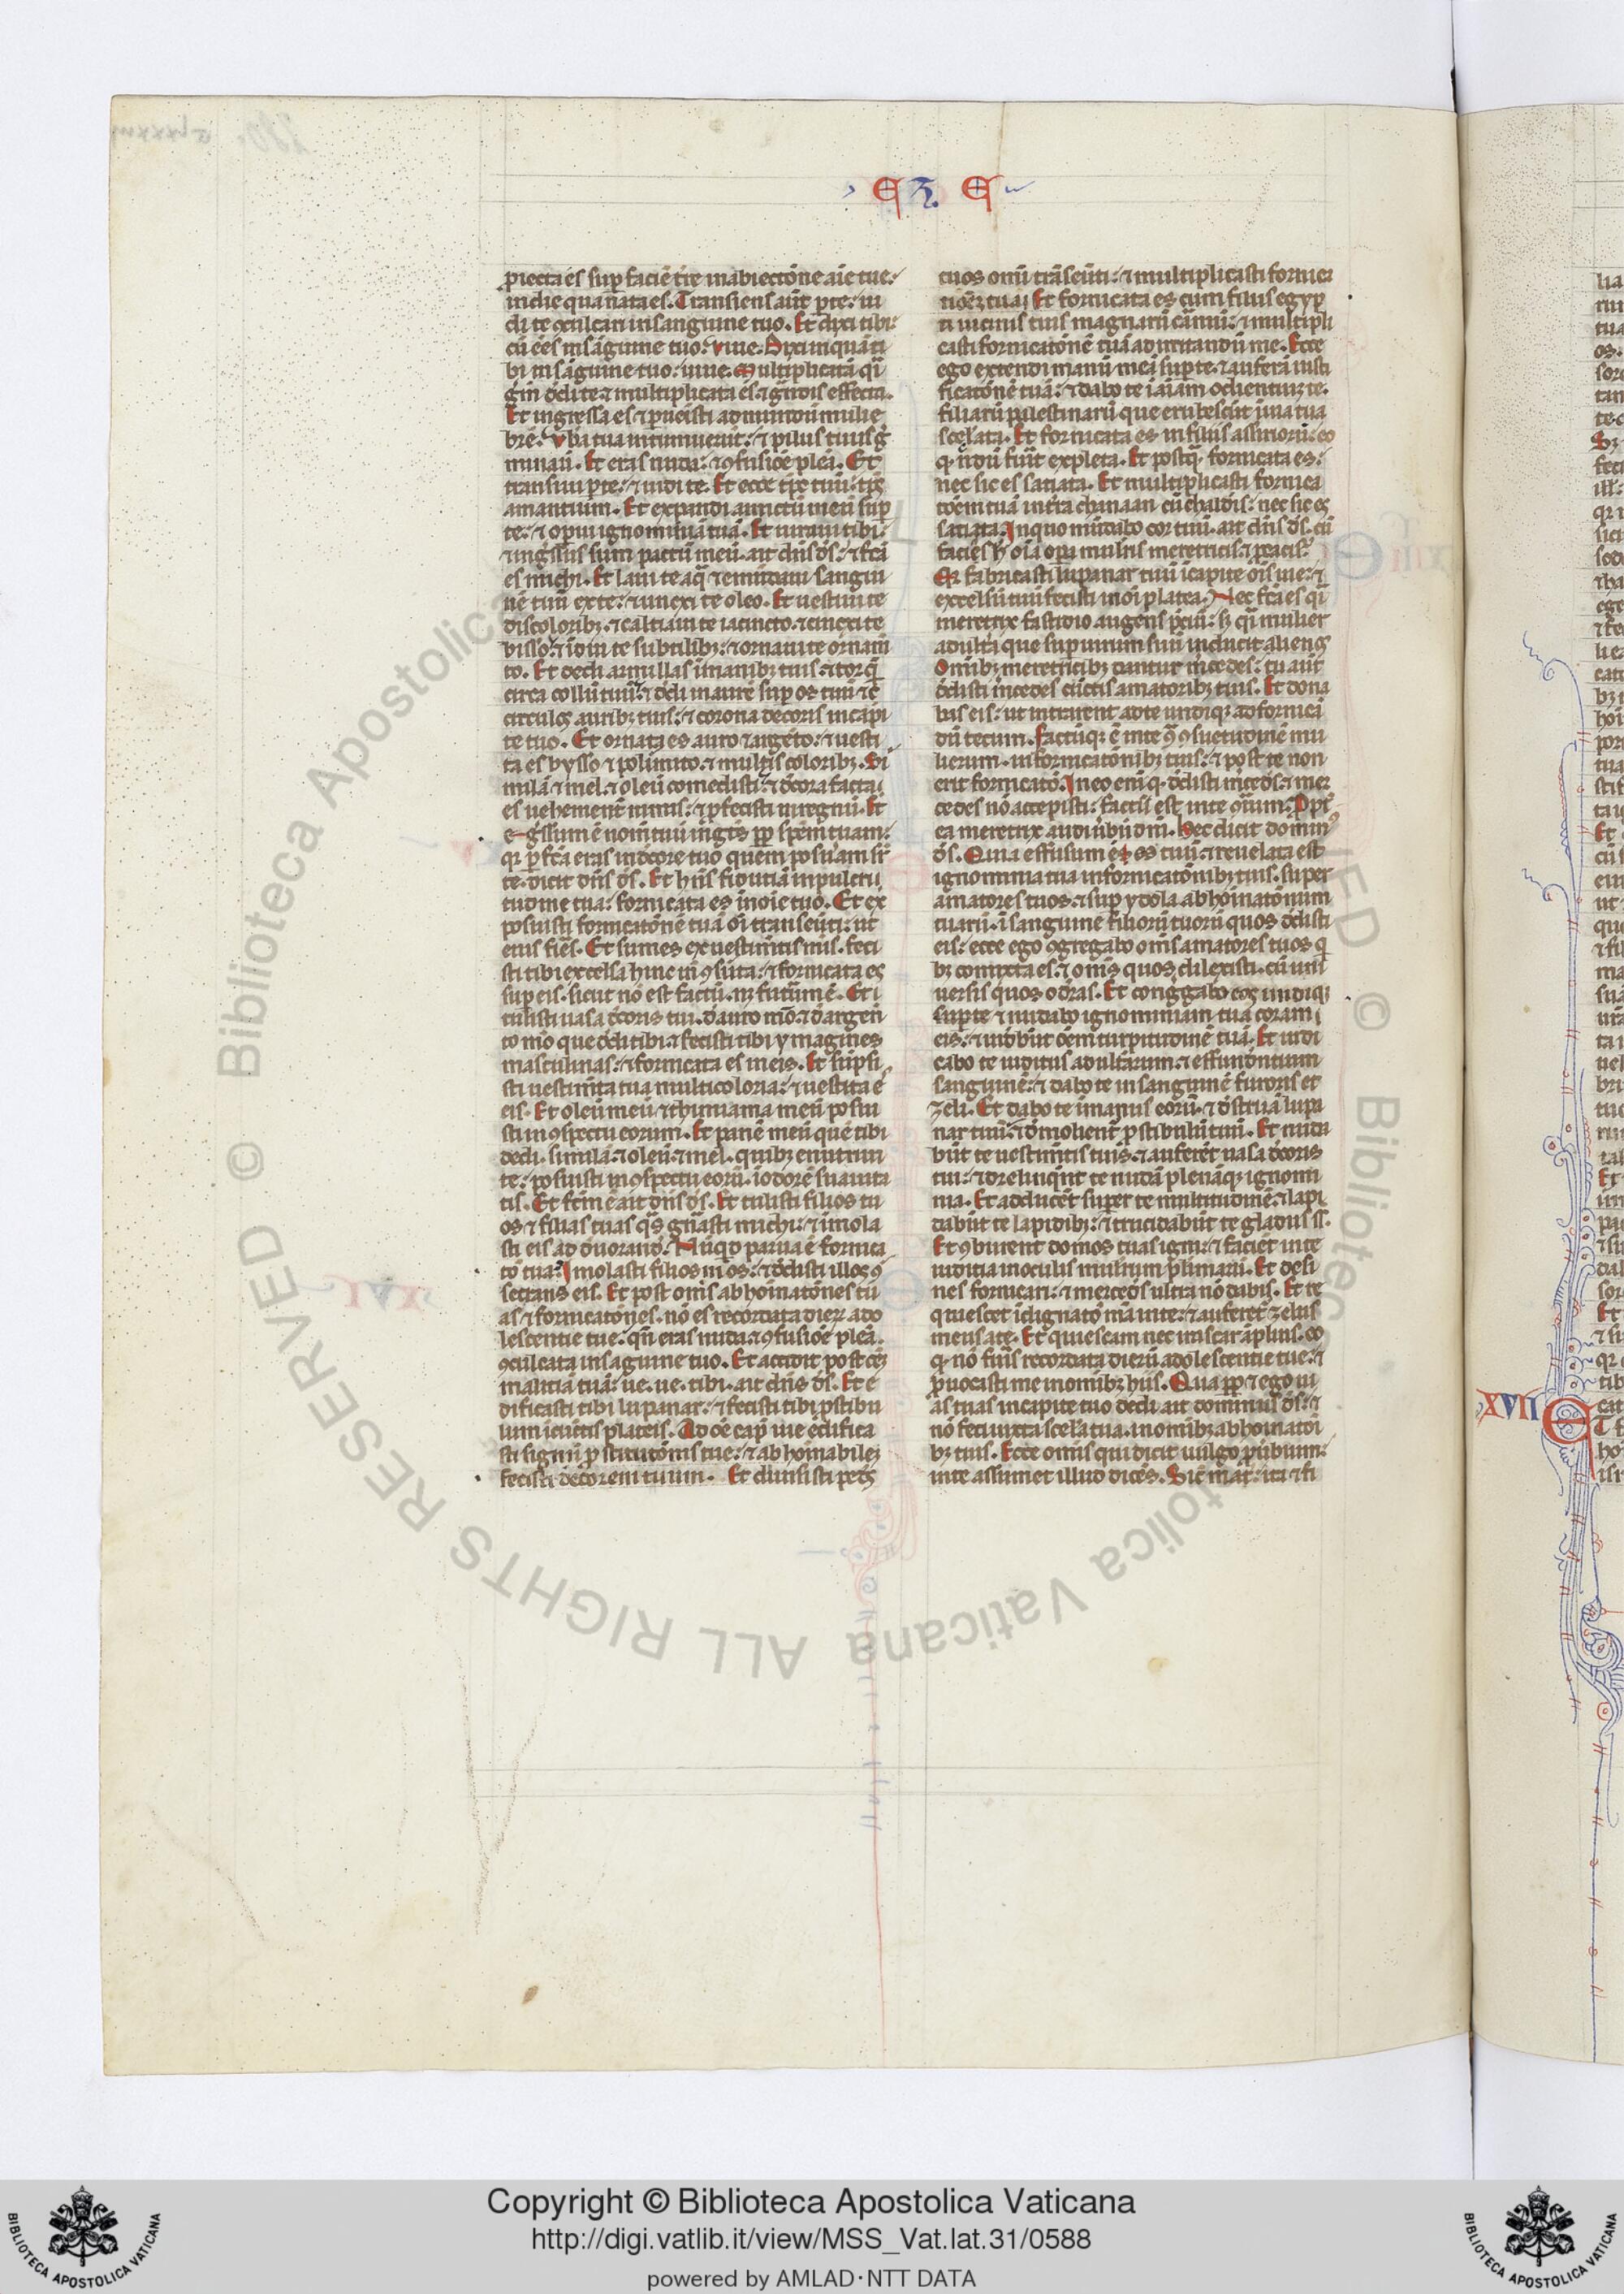 E Z E
proiecta es sup faciē t̄re in abiectōne aīe tue:
in die qua nata es. Transiens aūt p te: ui
di te cōculcari in sanguine tuo. Et dixi tibi
cū eēs in sāguine tuo: viue. Dixi inquā ti
bi in sāguine tuo: uiue. Multiplicatā q̄i
Et ingressa es ⁊ puēisti ad mundū mulie
brē. vbera tua intumuerūt: ⁊ pilus tuus gͥ
minauit. Et eras nuda: ⁊ ꝯfusiōe plēa. Et
transiui p te: ⁊ uidi te. Et ecce tp̄s tuū: tp̄s
amantium. Et expandi amictū meū sup
te: ⁊ opui ignominiā tuā. Et iuraui tibi:
⁊ ingssus sum pactū meū. ait dn̄s d̄s: ⁊ fc̄a
es michi. Et laui te aq̄ ⁊ emūdaui sangui
nē tuū ex te: ⁊ unexi te oleo. Et uestiui te
discoloribꝫ ⁊ calciaui te iacincto. ⁊ cinexi te
bisso: ⁊ īdui te subtilibꝫ: ⁊ ornaui te ornam̄
to. Et dedi armillas ī manibꝫ tuis ⁊ torq̄
circa collū tuū: ⁊ dedi inaurē sup os tuū ⁊
circulos auribꝫ tuis: ⁊ corona decoris in capi
te tuo. Et ornata es auro ⁊ argēto: ⁊ uesti
ta es bysso ⁊ polimito ⁊ multis coloribꝫ. Si
milā ⁊ mel ⁊ oleū comedisti: ⁊ decora facta
es uehemēnt nimis: ⁊ pfecisti in regnū. Et
egssum ē nom̄ tuū in gtēs pp sp̄em tuam:
qꝛ pfc̄a eras in decore tuo quem posuam sr̄
te. dicit dn̄s d̄s. Et hn̄s fiduciā in pulcri
tudine tua: fornicata es in noīe tuo. Et ex
posuisti fornicatōnē tuā oī̄ transeūti: ut
eius fieēs. Et sumēs ex uestim̄tis tuis. feci
sti tibi excelsa hinc in ꝯsuta: ⁊ fornicata es
sup eis. sicut nō est factū. nꝫ futūrm ē. Et t
tulisti uasa decoris tui. d̄ auro mō. ⁊ d̄ argen
to mō que dedi tibi. ⁊ fecisti tibi ymagines
masculinas: ⁊ fornicata es in eis. Et sūpsi
sti uestim̄ta tua multicoloria: ⁊ uestita ē
eis. Et oleū meū ⁊ thimiama meū posui
sti in ꝯspectu eorum. Et panē meū quē tibi
dedi. similā ⁊ oleū ⁊ mel. quibꝫ enutriui
te: posuisti in ꝯspectu eorū. ī odorē suauita
tis. Et fc̄m ē ait dn̄s d̄s. Et tulisti filios tu
os ⁊ filias tuas qͣs gn̄asti michi: ⁊ īmola
sti eis ad deuorand̄. Nūqͥd parua ē fornica
tō tua? Imolasti filios mōs: ⁊ dedisti illos ꝯ
secrans eis. Et post om̄s abhoīatōnes tu
as ⁊ fornicatōnes. nō es recordata dieꝝ ado
lescentie tue: qn̄ eras nuda. ⁊ ꝯfusiōe plēa.
ꝯculcata in sāguine tuo. Et accidit post oēꝫ
malitiā tuā: ue. ue. tibi. ait dn̄s d̄s. Et e
dificasti tibi lupanar: ⁊ fecisti tibi pstibu
lum ī cūctis plateis. Ad oē cap̄ uie edifica
sti signū pstitutōnis tue: ⁊ abhoīabileꝫ
fecisti decorem tuum. Et diuisisti pedes
tuos om̄i trāseūti: ⁊ multiplicasti fornica
tiōes tuas Et fornicata es cum filiis egyp
ti uicinis tuis magnarū cārniū: ⁊ multipli
casti fornicatōnē tuā ad irritandū me. Ecce
ego extendi manū meā sup te. ⁊ auferā iusti
ficatōnē tuā: ⁊ dabo te ī aīam odientiuꝫ te.
filiarū palestinarū que erubescūt ī uia tua
scelata. Et fornicata es in filiis assiriorū: eo
qͥ n̄dū fuīt expleta. Et postqͣ fornicata es:
nec sic es satiata. Et multiplicasti fornica
tōem tuā in tr̄a chanaan cū chaldeis: nec sic es
satiata. In quo mūdabo cor tuū. ait dn̄s d̄s. cū
facies h̄ oīa opa mulris meretricis. ⁊ pcacis?
Qꝛ fabricasti lupanar tuū ī capite oīs uie: ⁊
excelsū tuū fecisti in oī platea. Nec fc̄a es q̄i
meretrix fastidio augens pciū: sꝫ q̄i mulier
adultera que sup uirum suū inducit alienos
Omībꝫ meretricibꝫ dantur mcedes: tu aūt
dedisti mcedes cūctis amatoribꝫ tuis. Et dona
bas eis: ut intrarent ad te undiqꝫ ad fornicā
dū tecum. factūqꝫ ē in te ꝯ ꝯsuetudinē mu
lierum. in fornicatōnibꝫ tuis: ⁊ post te non
erit fornicatō. In eo enī qͥ dedisti mcedes. ⁊ mer
cedes nō accepisti: factū est in te ꝯ̄trium: Ppt̄
ea meretrix audi ūbū dn̄i. Hec dicit domin⁹
d̄s. Quia effusum ē es tuū. ⁊ reuelata est
ignominia tua in fornicatōnibꝫ tuis. super
amatores tuos. ⁊ sup ydola abhoīatōnum
tuarū. ī sanguine filiorū tuorū quos dedisti
eis: ecce ego ꝯgregabo om̄s amatores tuos qͥ
bꝫ comixta es. ⁊ om̄s quos dilexisti. cū uni
uersis quos oderas. Et congregabo eos undiqꝫ
sup te ⁊ nudabo ignominiam tuā coram
eis: ⁊ uidebūt oēm turpitudinē tuā. Et iudi
cabo te iuditiis adultarum. ⁊ effundentium
sanguinē: ⁊ dabo te in sanguinē furoris et
zeli. Et dabo te ī manus eorū. ⁊ destruāt lupa
nar tuū: ⁊ demolient̄ pstibulū tuū. Et nuda
būt te uestim̄tis tuis. ⁊ auferēt uasa decoris
tui: ⁊ derelinqūt te nudā plenāqꝫ ignomi
nia. Et adducēt super te multitudinē. ⁊ lapi
dabūt te lapidibꝫ: ⁊ trucidabūt te gladiis s̄s.
Et ꝯburent domos tuas igni: ⁊ faciēt in te
iuditia in oculis mulierum plimarū. Et desi
nes fornicari: ⁊ mercedes ultra nō dabis. Et re
quiescet īdignatō mā in te: ⁊ auferet̄ zelus
meus a te. Et quiescam nec irascar āplius. eo
qͥ nō fuis̄ recordata dierū adolescentie tue: ⁊
puocasti me in om̄ibꝫ hiis. Qua pp ⁊ ego ui
as tuas in capite tuo dedi ait dominus d̄s: ⁊
nō feci iuxta scela tua. in om̄ibꝫ abhoīatōi
bꝫ tuis. Ecce om̄is qui dicit uulgo pūbium:
in te assumet illud dicēs. Sic māt: ita ⁊ fi
XVII
Copyright © Biblioteca Apostolica Vaticana
http://digi.vatlib.it/view/MSS_Vat.lat.31/0588
powered by AMLAD·NTT DATA
BIBLIOTECA APOSTOLICA VATICANA
BIBLIOTECA APOSTOLICA VATICANA
© Biblioteca Apostolica Vaticana ALL RIGHTS RESERVED